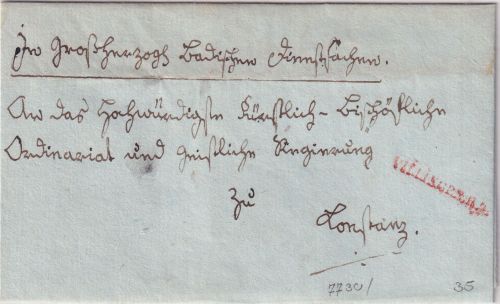 In Großherzogl Badischen Dienstsachen.
An das Hochwürdigste Fürstlich-Bischöfliche
Ordinariat und geistliche Regierung
VILLINGEN.
zu
Constanz.
7730/ 35